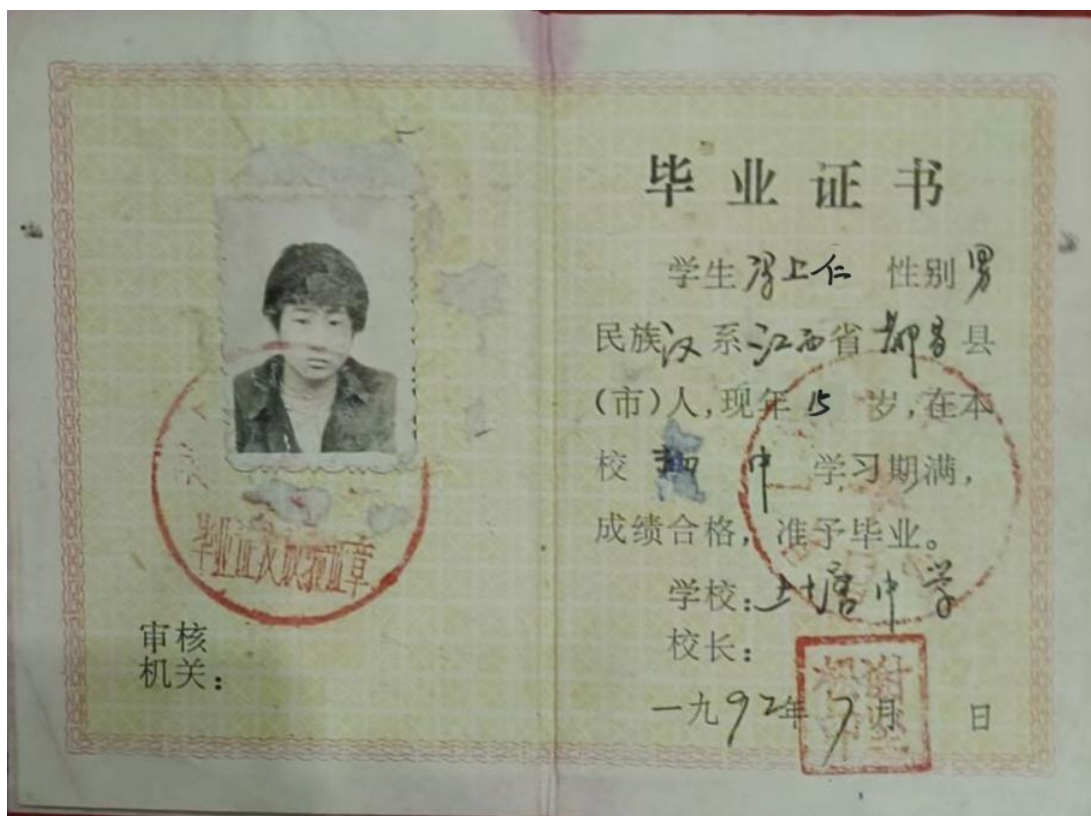 毕业证书
学生冯上仁 性别男
民族汉系江西省都昌县
(市)人,现年15岁,在本
校 初中 学习期满,
成绩合格,准予毕业。
学校:土塘中学
校长:
一九92年7月 日
审核
机关:
毕业证 验证章